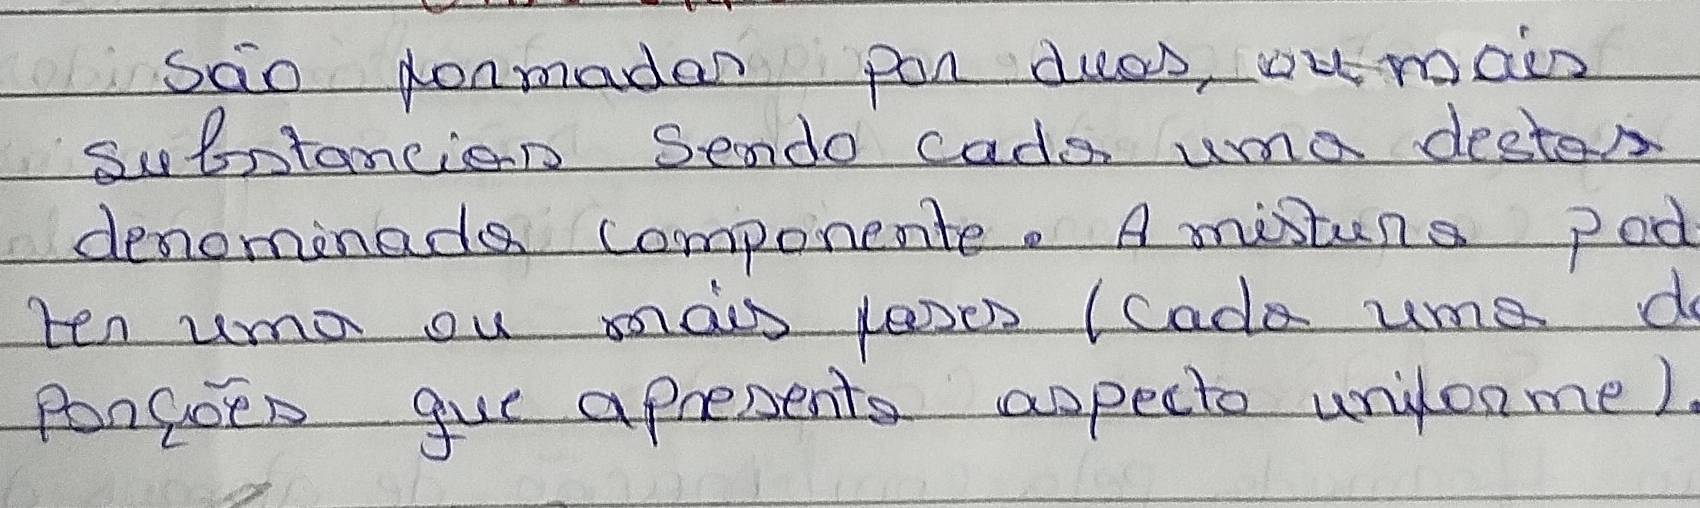 são formadas por duas, ou mais
substancias sendo cada uma destas
denominada componente. A mistura pod
ter uma ou mais fases (cada uma d
porções que apresenta aspecto uniforme).